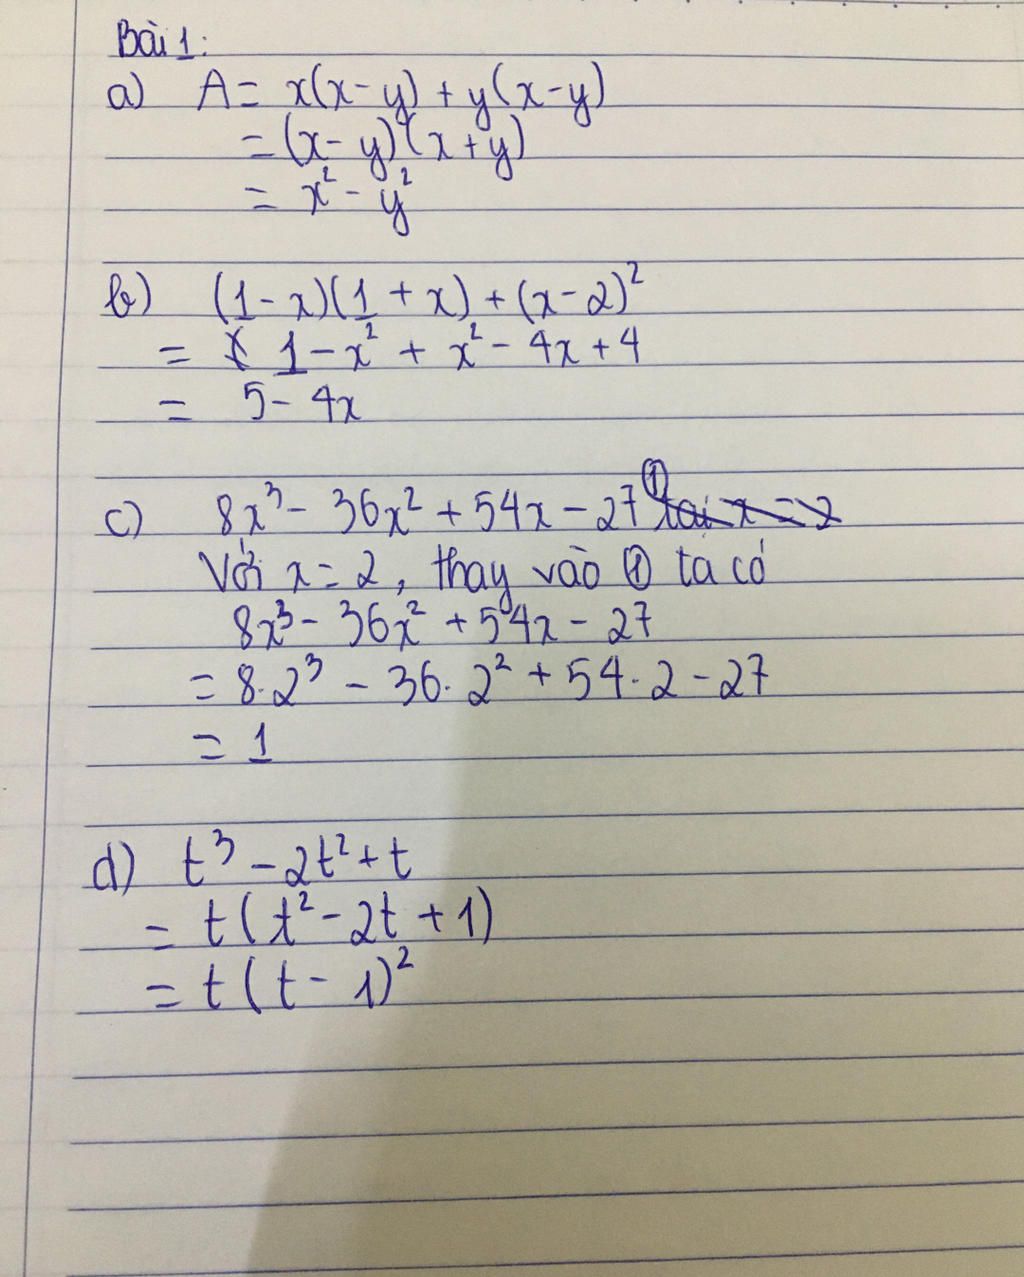 Bài 1:
a) A = x(x-y) + y(x-y)
= (x-y)(x+y)
= x² - y²
b) (1-x)(1+x) + (x-2)²
= 1 - x² + x² - 4x + 4
= 5 - 4x
c) 8x³ - 36x² + 54x - 27 ① tại x = 2
Với x = 2, thay vào ① ta có
8x³ - 36x² + 54x - 27
= 8.2³ - 36.2² + 54.2 - 27
= 1
d) t³ - 2t² + t
= t(t² - 2t + 1)
= t(t - 1)²